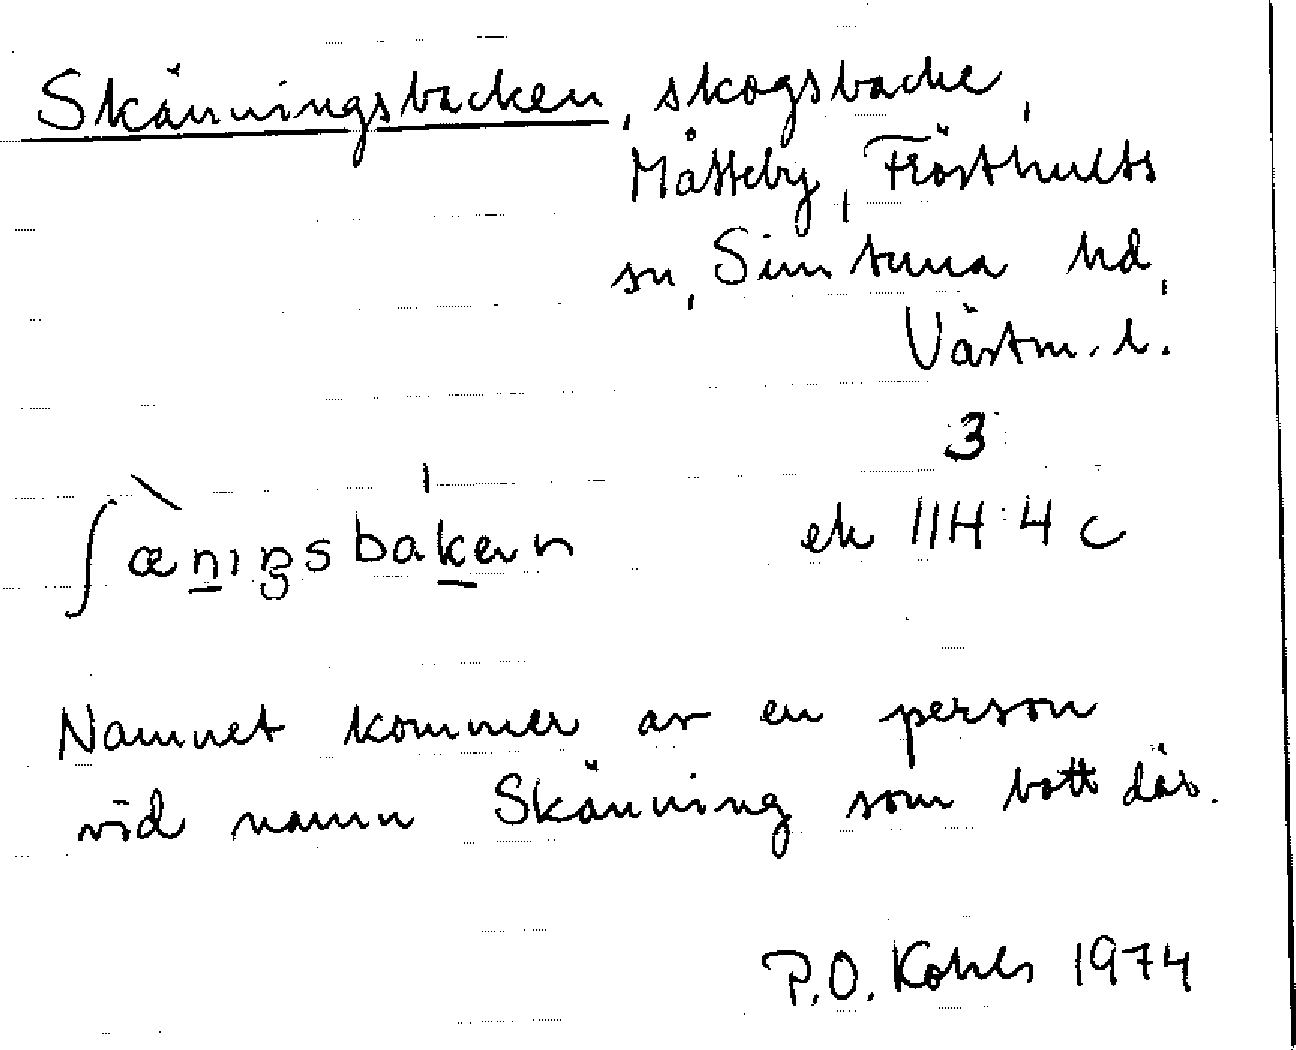 Skänningsbacken, skogsbacke,
Måtteby, Frösthults
sn, Simtuna hd,
Västm. l.
3
ʃænɪŋsbakɐn ek 11H:4c
Namnet kommer av en person
vid namn Skänning som bott där.
P.O. Kohls 1974